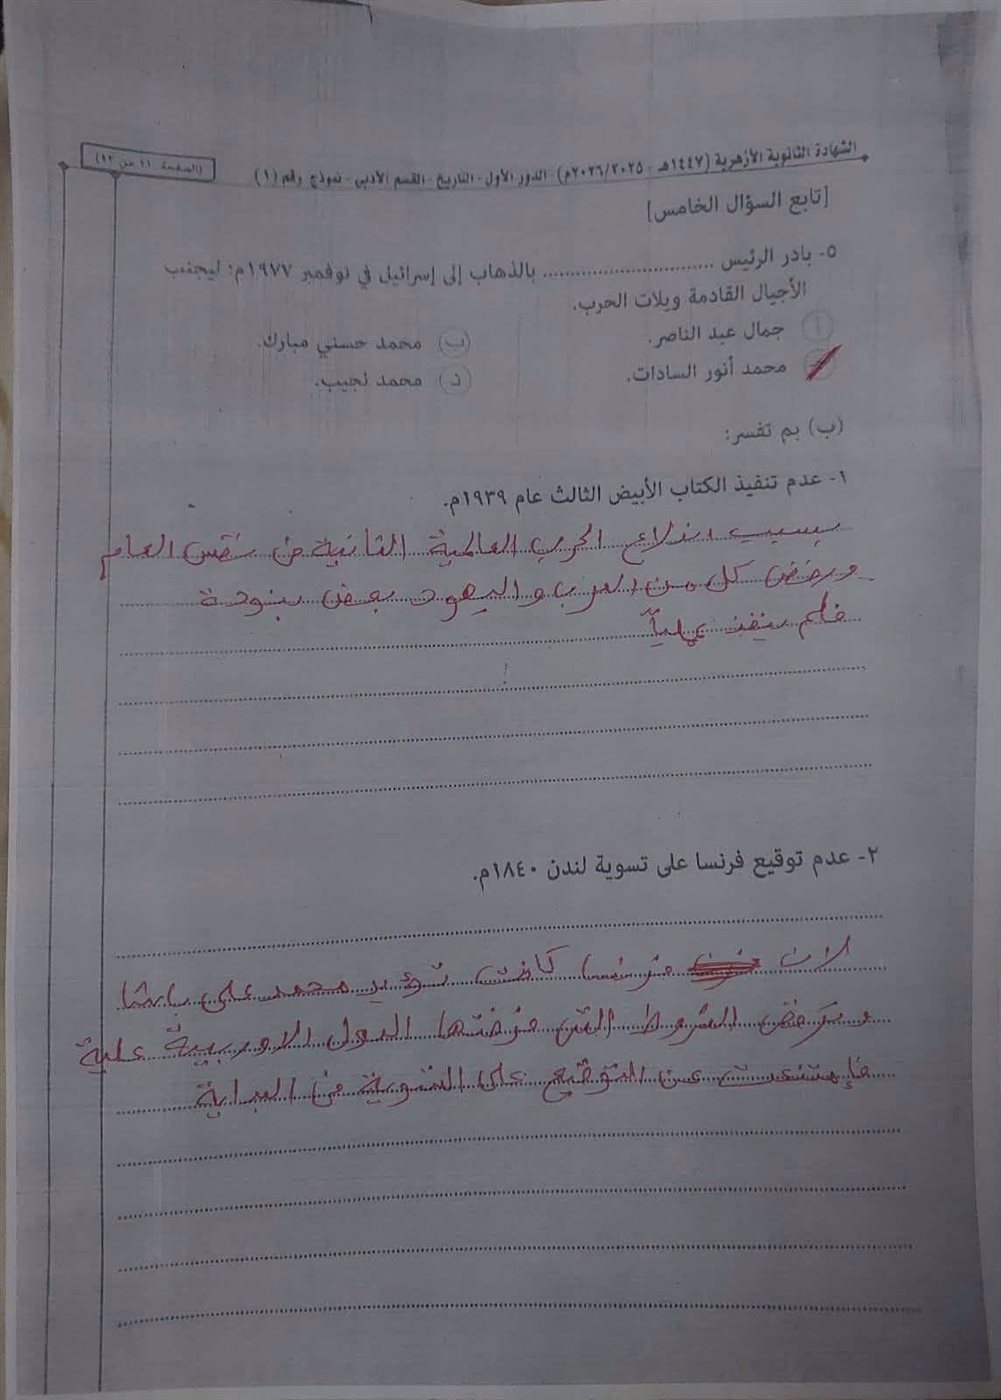 الشهادة الثانوية الأزهرية (١٤٤٧هـ - ٢٠٢٦/٢٠٢٥م) - الدور الأول - التاريخ - القسم الأدبي - نموذج رقم (١)
(الصفحة ١١ من ١٢)
[تابع السؤال الخامس]
٥- بادر الرئيس .............................. بالذهاب إلى إسرائيل في نوفمبر ١٩٧٧م؛ ليجنب
الأجيال القادمة ويلات الحرب.
(أ) جمال عبد الناصر.
(ب) محمد حسني مبارك.
محمد أنور السادات.
(د) محمد نجيب.
(ب) بم تفسر:
١- عدم تنفيذ الكتاب الأبيض الثالث عام ١٩٣٩م.
بسبب اندلاع الحرب العالمية الثانية في نفس العام
ورفض كل من العرب واليهود بعض بنودة
فلم ينفذ عملياً
٢- عدم توقيع فرنسا على تسوية لندن ١٨٤٠م.
لان فرنسا كانت تؤيد محمد على باشا
وترفض الشروط التى فرضتها الدول الاوربية علية
فإمتنعت عن التوقيع على التسوية من البداية